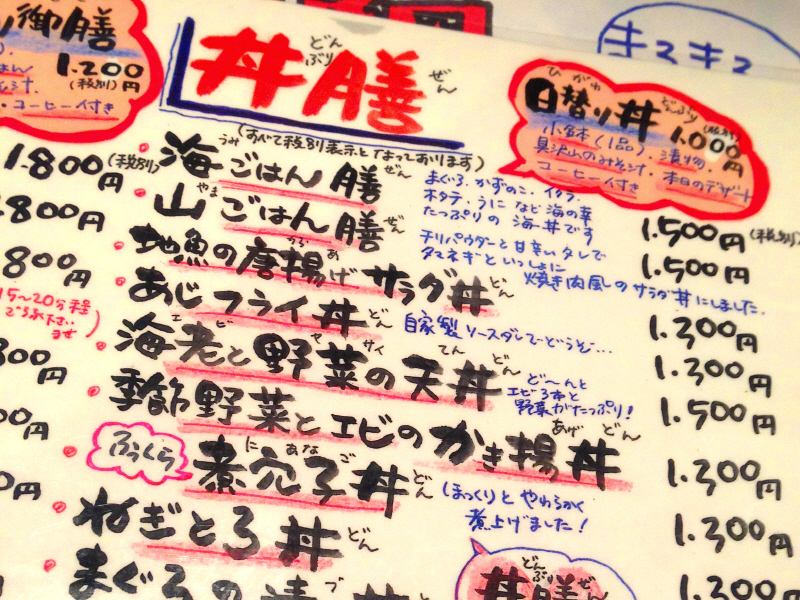 御膳
1.200円
(税別)
・コーヒー付き
丼膳
どんぶり ぜん
(すべて税別表示となっております)
日替り丼
ひがわ どんぶり
1.000円
小鉢(1品)・漬物・
具沢山のみそ汁・
コーヒー付き・本日のデザート
・海ごはん膳
うみ ぜん
まぐろ、かずのこ、イクラ、
ホタテ、うになど海の幸
たっぷりの海丼です
1.500円(税別)
・山ごはん膳
やま ぜん
チリパウダーと甘辛いタレで
タマネギといっしょに
焼き肉風のサラダ丼にしました.
1.500円
・地魚の唐揚げサラダ丼
から あ どん
1.300円
・あじフライ丼
どん
自家製ソースダレでどうぞ…
1.300円
・海老と野菜の天丼
エビ ヤサイ てん どん
ど〜んと
エビ3本と
野菜がたっぷり!
1.500円
・季節野菜とエビのかき揚丼
あげ どん
1.300円
ふっくら
煮穴子丼
に あなご どん
ほっくりとやわらかく
煮上げました!
1.300円
・ねぎとろ丼
どん
1.300円
・まぐろの漬丼
づ
丼膳
どんぶり ぜん
1.800円(税別)
800円
800円
15〜20分程
300円
00円
0円